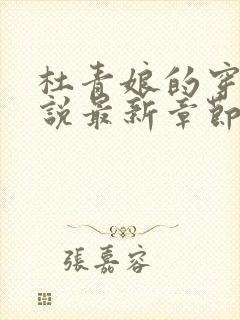 杜青娘的穿
說最新章節
張嘉容